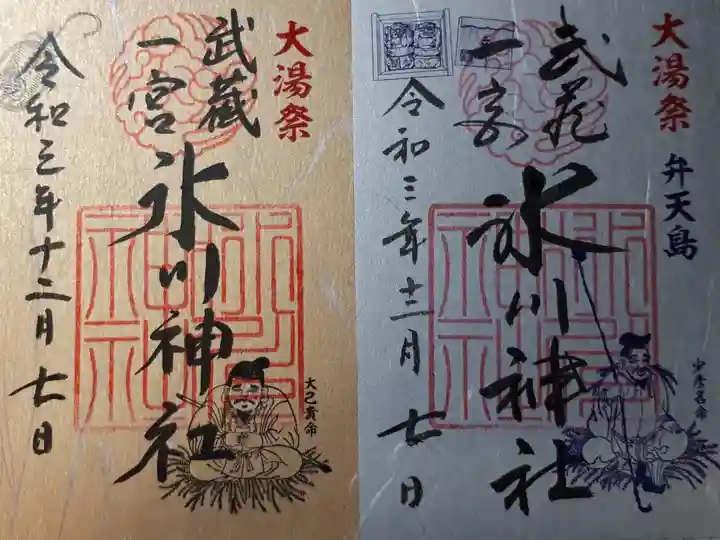 大湯祭
弁天島
武蔵
一宮
氷川神社
令和三年十二月七日
少彦名命
大湯祭
武蔵
一宮
氷川神社
令和三年十二月七日
大己貴命